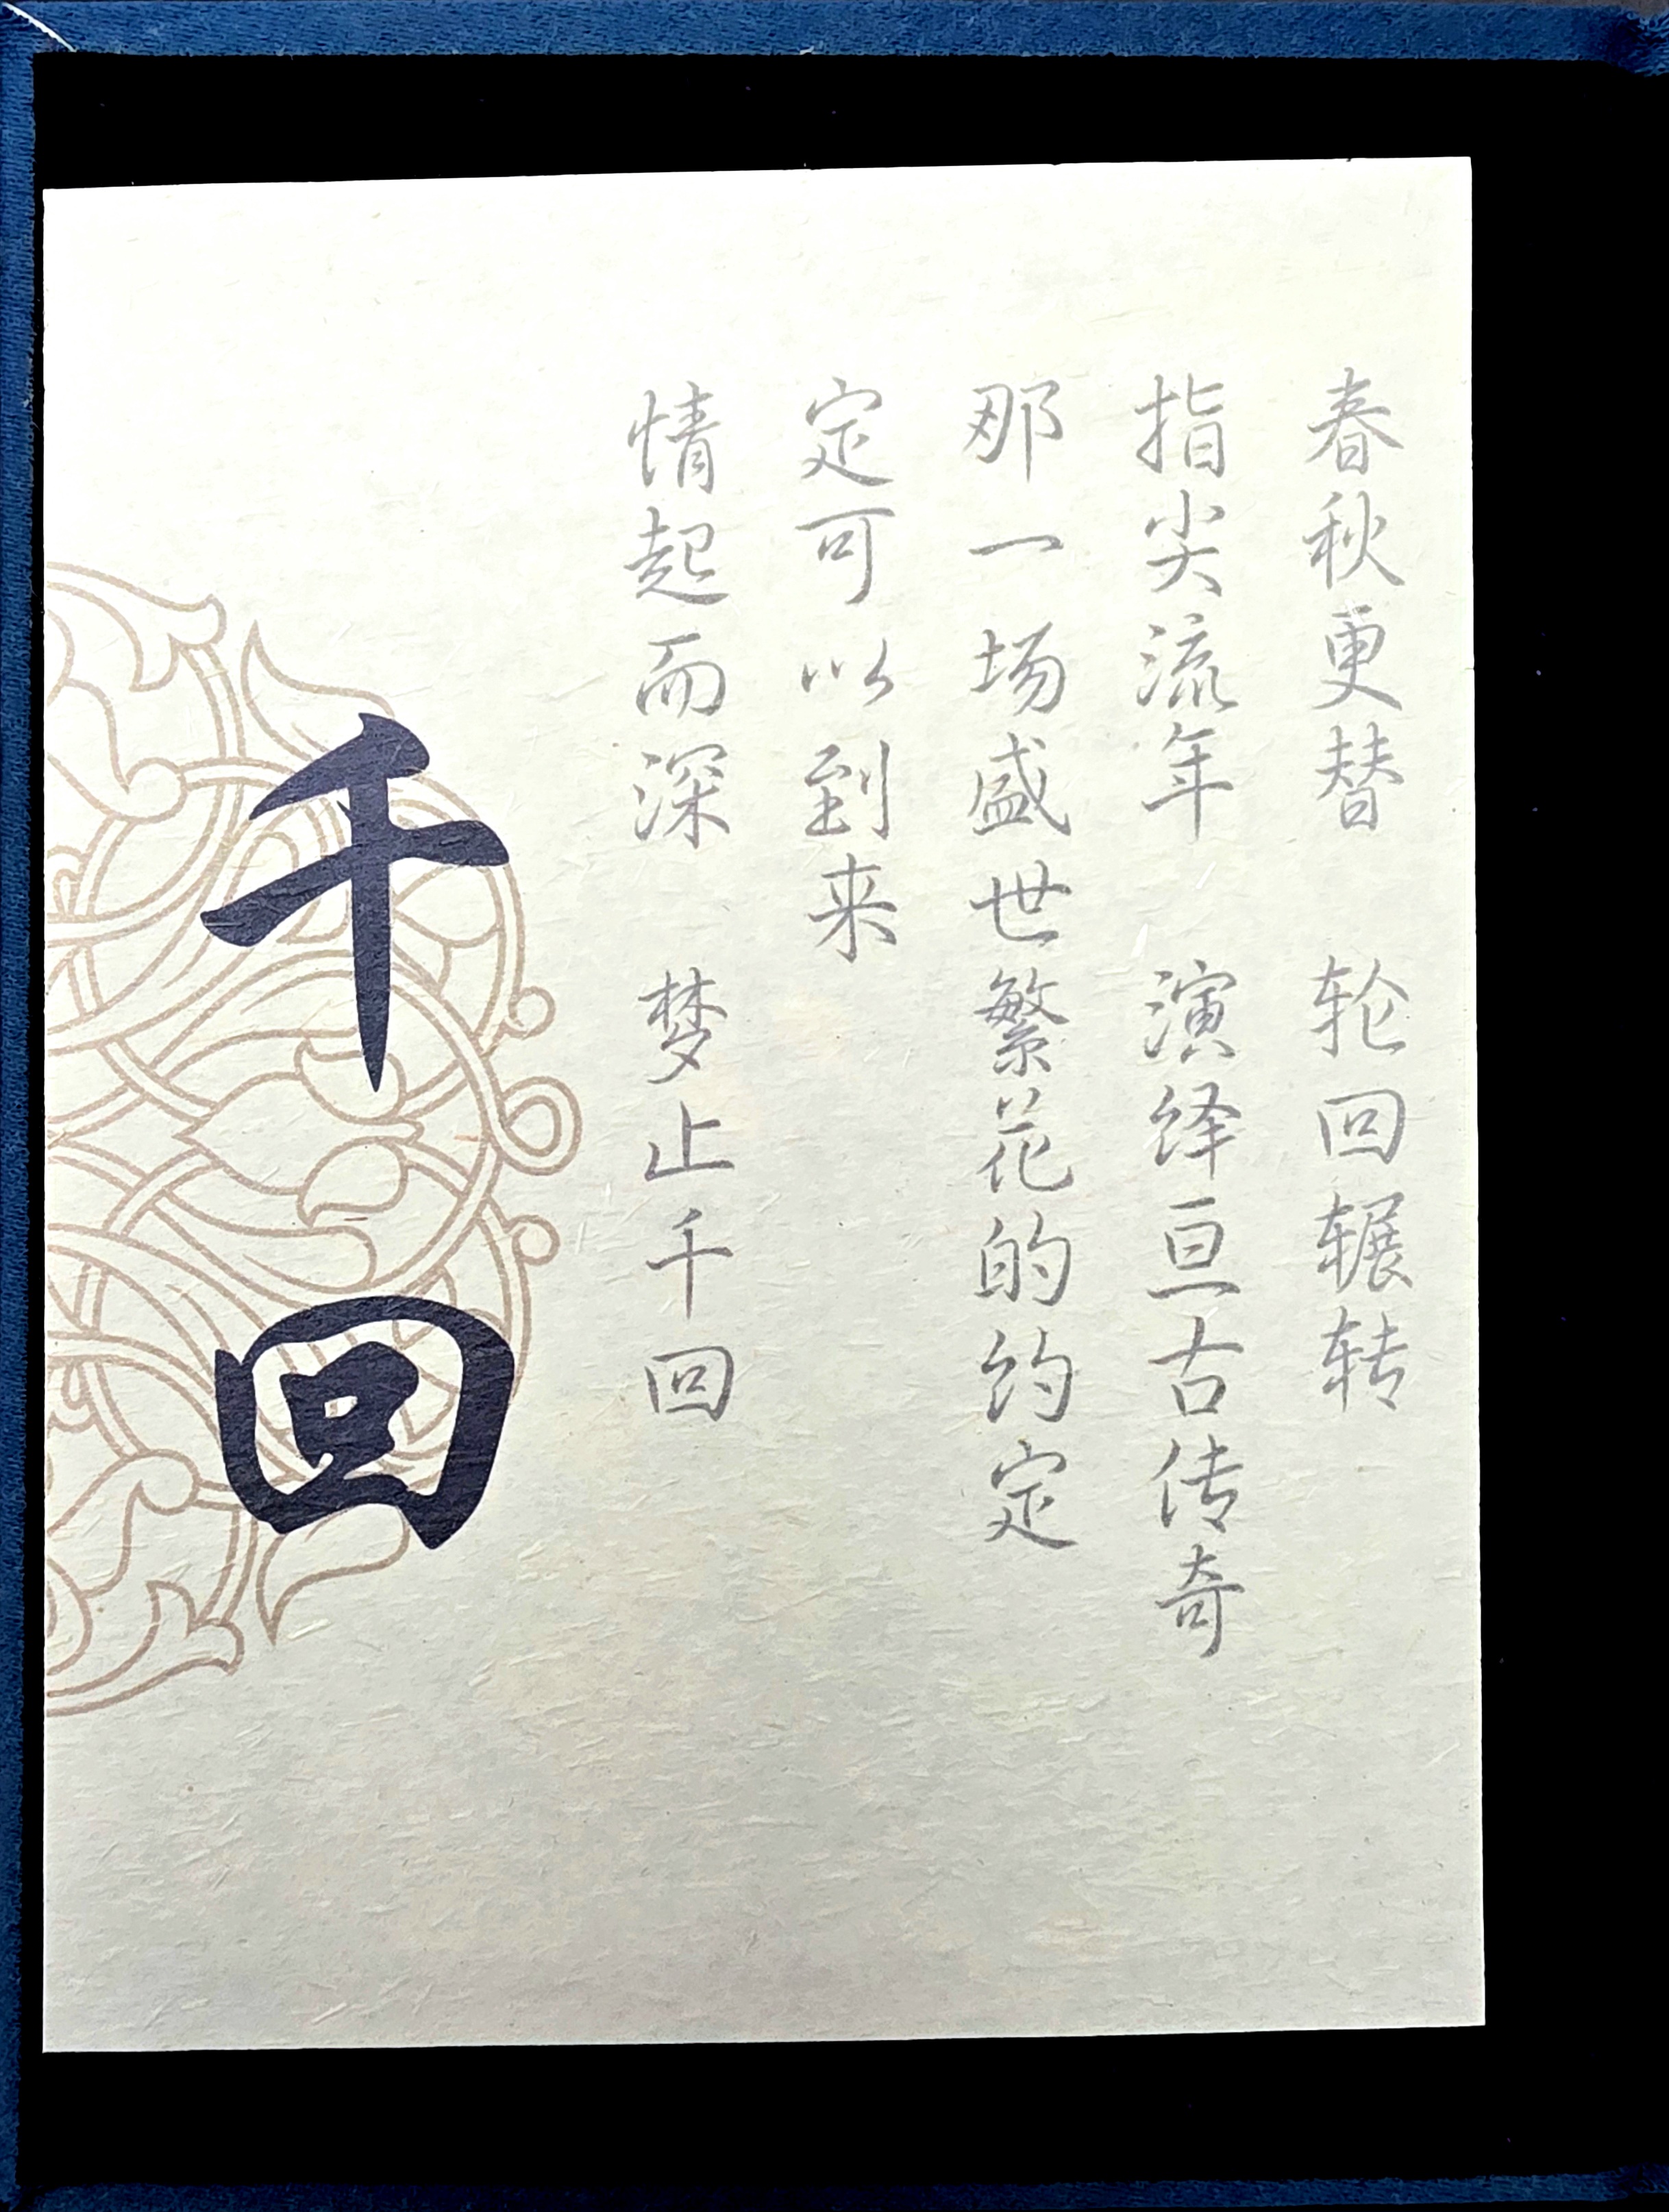 春秋更替　轮回辗转
指尖流年　演绎亘古传奇
那一场盛世繁花的约定
定可以到来
情起而深　梦止千回
千回